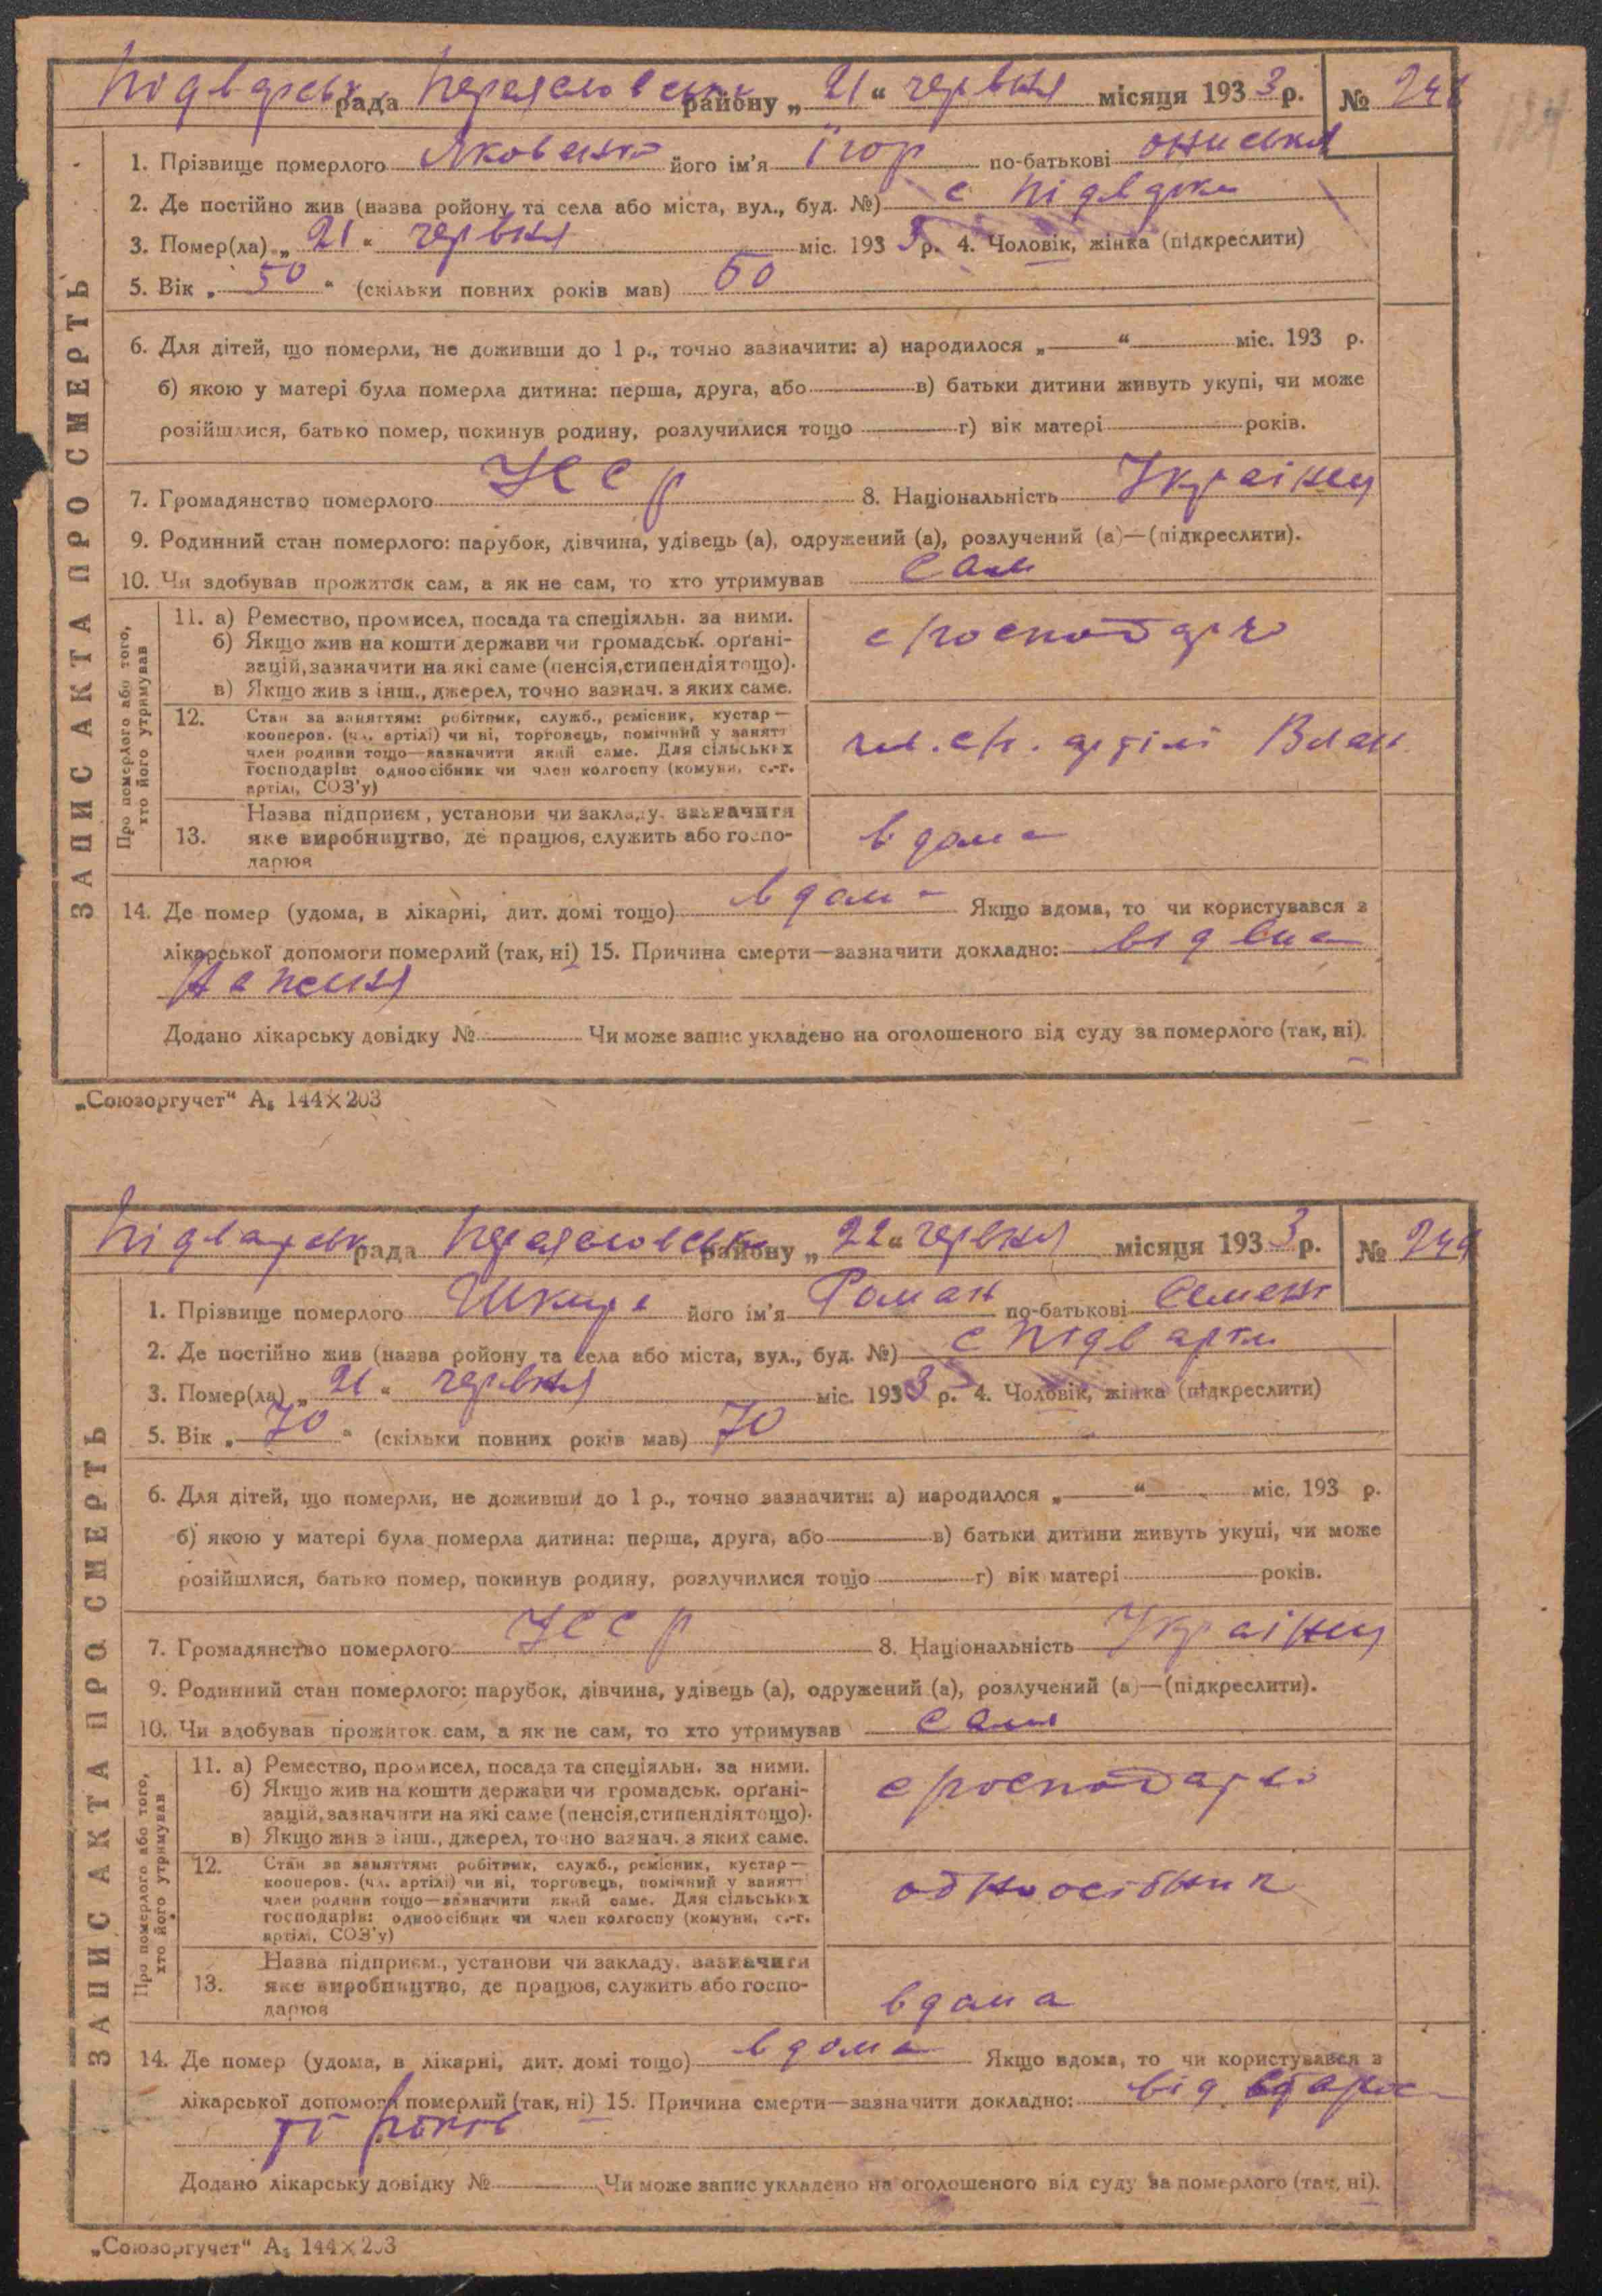 Підварськ рада Переяславськ району „ 21 “ червня місяця 193 3 р. № 24
1. Прізвище померлого Яковенко його ім’я Ігор по-батькові
2. Де постійно жив (назва ройону та села або міста, вул., буд. №) с Підварки
3. Помер(ла) „ 21 “ червня міс. 193 3 р. 4. Чоловік, жінка (підкреслити)
5. Вік „ 50 “ (скільки повних років мав) 50
6. Для дітей, що померли, не доживши до 1 р., точно зазначити: а) народилося „ — “ міс. 193 р.
б) якою у матері була померла дитина: перша, друга, або — в) батьки дитини живуть укупі, чи може
розійшлися, батько помер, покинув родину, розлучилися тощо — г) вік матері — років.
7. Громадянство померлого УССР 8. Національність Українец
9. Родинний стан померлого: парубок, дівчина, удівець (а), одружений (а), розлучений (а)—(підкреслити).
10. Чи здобував прожиток сам, а як не сам, то хто утримував сам
ЗАПИС АКТА ПРО СМЕРТЬ
Про померлого або того,
хто його утримував
11. а) Ремество, промисел, посада та спеціяльн. за ними.
б) Якщо жив на кошти держави чи громадськ. орґані-
зацій, зазначити на які саме (пенсія, стипендія тощо).
в) Якщо жив з інш., джерел, точно зазнач. з яких саме.
12. Стан за заняттям: робітник, служб., ремісник, кустар—
кооперов. (чл. артілі) чи ні, торговець, помічний у занятт
член родини тощо—зазначити який саме. Для сільських
господарів: одноосібник чи член колгоспу (комуни, с.-г.
артілі, СОЗ’у)
чл. с/г. артілі
13. Назва підприєм., установи чи закладу. зазначити
яке виробництво, де працюв, служить або госпо-
дарюв
вдома
14. Де помер (удома, в лікарні, дит. домі тощо) вдома Якщо вдома, то чи користувався з
лікарської допомоги померлий (так, ні) 15. Причина смерти—зазначити докладно: від
Додано лікарську довідку № — Чи може запис укладено на оголошеного від суду за померлого (так, ні).
„Союзоргучет“ А₅ 144×203
Підварськ рада Переяславськ району „ 22 “ червня місяця 193 3 р. № 24
1. Прізвище померлого Шкира його ім’я Роман по-батькові Семен
2. Де постійно жив (назва ройону та села або міста, вул., буд. №) с Підварки
3. Помер(ла) „ 21 “ червня міс. 193 3 р. 4. Чоловік, жінка (підкреслити)
5. Вік „ 70 “ (скільки повних років мав) 70
6. Для дітей, що померли, не доживши до 1 р., точно зазначити: а) народилося „ — “ міс. 193 р.
б) якою у матері була померла дитина: перша, друга, або — в) батьки дитини живуть укупі, чи може
розійшлися, батько помер, покинув родину, розлучилися тощо — г) вік матері — років.
7. Громадянство померлого УССР 8. Національність Українец
9. Родинний стан померлого: парубок, дівчина, удівець (а), одружений (а), розлучений (а)—(підкреслити).
10. Чи здобував прожиток сам, а як не сам, то хто утримував сам
ЗАПИС АКТА ПРО СМЕРТЬ
Про померлого або того,
хто його утримував
11. а) Ремество, промисел, посада та спеціяльн. за ними.
б) Якщо жив на кошти держави чи громадськ. орґані-
зацій, зазначити на які саме (пенсія, стипендія тощо).
в) Якщо жив з інш., джерел, точно зазнач. з яких саме.
12. Стан за заняттям: робітник, служб., ремісник, кустар—
кооперов. (чл. артілі) чи ні, торговець, помічний у занятт
член родини тощо—зазначити який саме. Для сільських
господарів: одноосібник чи член колгоспу (комуни, с.-г.
артілі, СОЗ’у)
одноосібник
13. Назва підприєм., установи чи закладу. зазначити
яке виробництво, де працюв, служить або госпо-
дарюв
вдома
14. Де помер (удома, в лікарні, дит. домі тощо) вдома Якщо вдома, то чи користувався з
лікарської допомоги померлий (так, ні) 15. Причина смерти—зазначити докладно: від старос
ті років
Додано лікарську довідку № — Чи може запис укладено на оголошеного від суду за померлого (так, ні).
„Союзоргучет“ А₅ 144×203